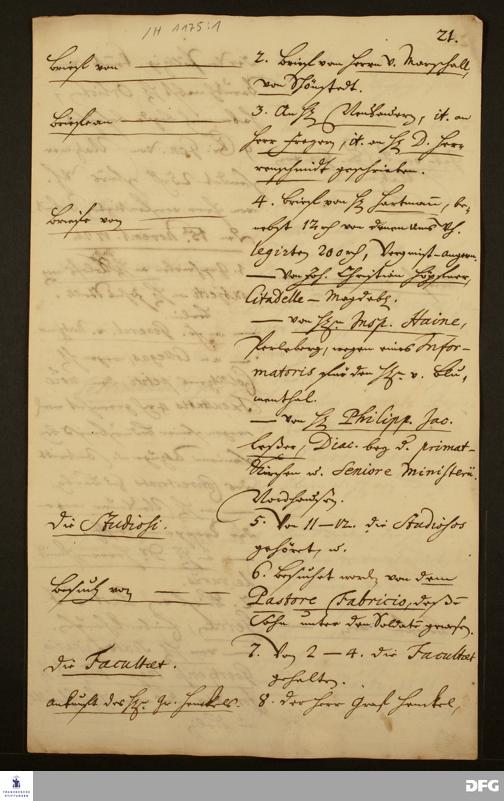 /H 1175:1
21.
Briefe von
2. Brief vom Herrn v. Marschall,
von Schönstedt.
Briefe an
3. An H. Neubauern, it. an
Herr Freyern, it. an H. D. Herr-
renschmidt geschrieben.
Briefe von
4. Brief von H. Hartmann, be-
nebst 12 von denen
legirten 200, Angern.
— von Joh. Christian Höppner,
Citadelle — Magdeb.
— von Hrn Insp. Haine,
Perleberg, wegen eines Infor-
matoris für den Hrn v. Blu-
menthal.
— von H. Philipp. Jac.
Leßer, Diac. bey d. primat-
Kirchen u. Seniore Ministerii
Nordhausen.
Die Studiosi.
5. Von 11—12. die Studiosos
gehöret, u.
Besuch von
6. Besuchet word. von dem
Pastore Fabricio, deßen
Sohn unter den Soldaten gewesen.
Die Facultaet.
7. Von 2—4. die Facultaet
gehalten.
Ankunft des Hrn Gr. Henckels.
8. Der Herr Graf Henckel,
FRANCKESCHE
STIFTUNGEN
DFG